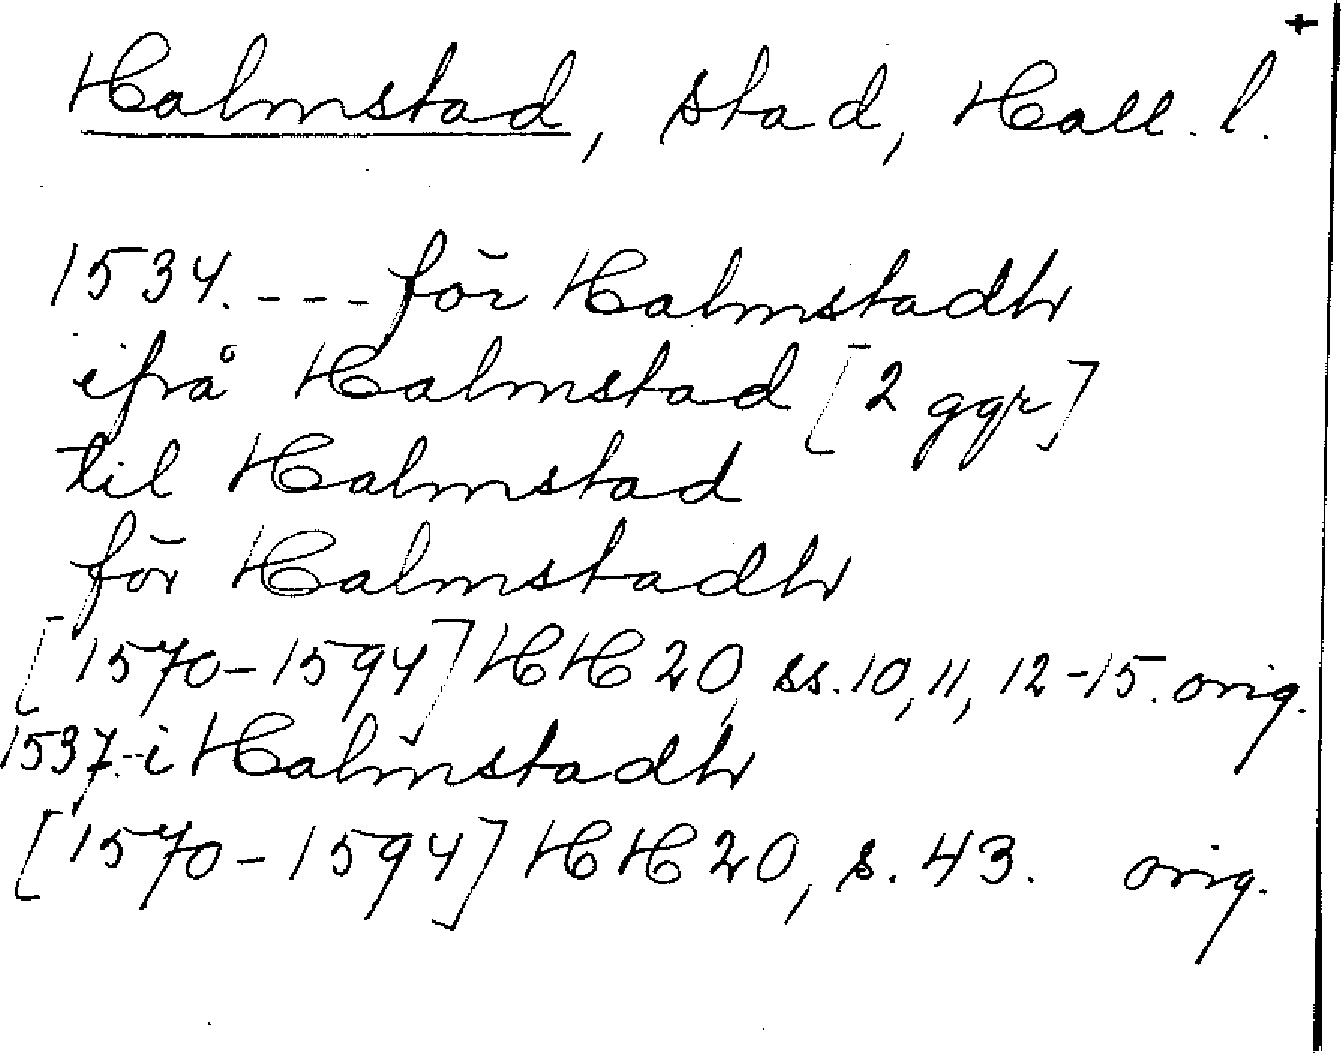 +
Halmstad, stad, Hall. l.
1534. - - - för Halmstadh
ifrå Halmstad [2 ggr]
til Halmstad
för Halmstadh
[1570-1594] HH 20, ss. 10, 11, 12-15. orig.
1537.- i Halmstadh
[1570-1594] HH 20, s. 43. orig.